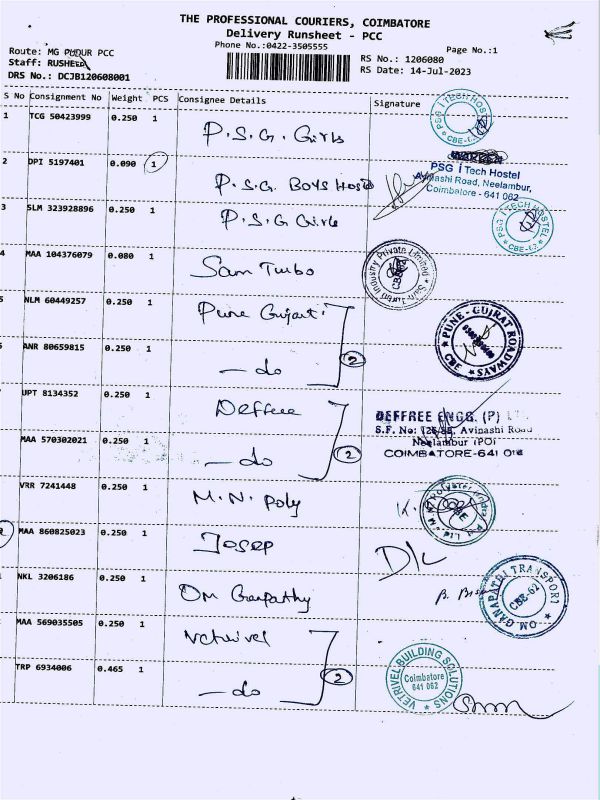 THE PROFESSIONAL COURIERS, COIMBATORE
Delivery Runsheet - PCC
Phone No.:0422-3505555
Page No.:1
Route: MG PUDUR PCC
Staff: RUSHEED
DRS No.: DCJB120608001
RS No.: 1206080
RS Date: 14-Jul-2023
S No Consignment No Weight PCS Consignee Details Signature
1 TCG 50423999 0.250 1 P.S.G. Girls
PSG i TECH HOSTEL
CBE-62
2 DPI 5197401 0.090 1 P.S.G. BOYS Hostel
PSG i Tech Hostel
Avinashi Road, Neelambur,
Coimbatore - 641 062
3 SLM 323928896 0.250 1 P.S.G Girls
PSG i TECH HOSTEL
CBE-62
4 MAA 104376079 0.080 1 Sam Turbo
Sam Turbo Industry Private Limited
5 NLM 60449257 0.250 1 Pune Gujarti
PUNE - GUJRAT ROADWAYS
CBE
ANR 80659815 0.250 1 - do 2
UPT 8134352 0.250 1 Deffree
DEFFREE ENGG. (P)
S.F. No: Avinashi Road
Neelambur (PO)
COIMBATORE-641
MAA 570302021 0.250 1 - do 2
VRR 7241448 0.250 1 M.N. Poly
MAA 860825023 0.250 1 Josep
D/L
NKL 3206186 0.250 1 Om Ganpathy
OM GANAPATHI TRANSPORT
CBE-62
MAA 569035505 0.250 1 Vetrivel
VETRIVEL BUILDING SOLUTIONS
Coimbatore
641 062
TRP 6934006 0.465 1 - do 2